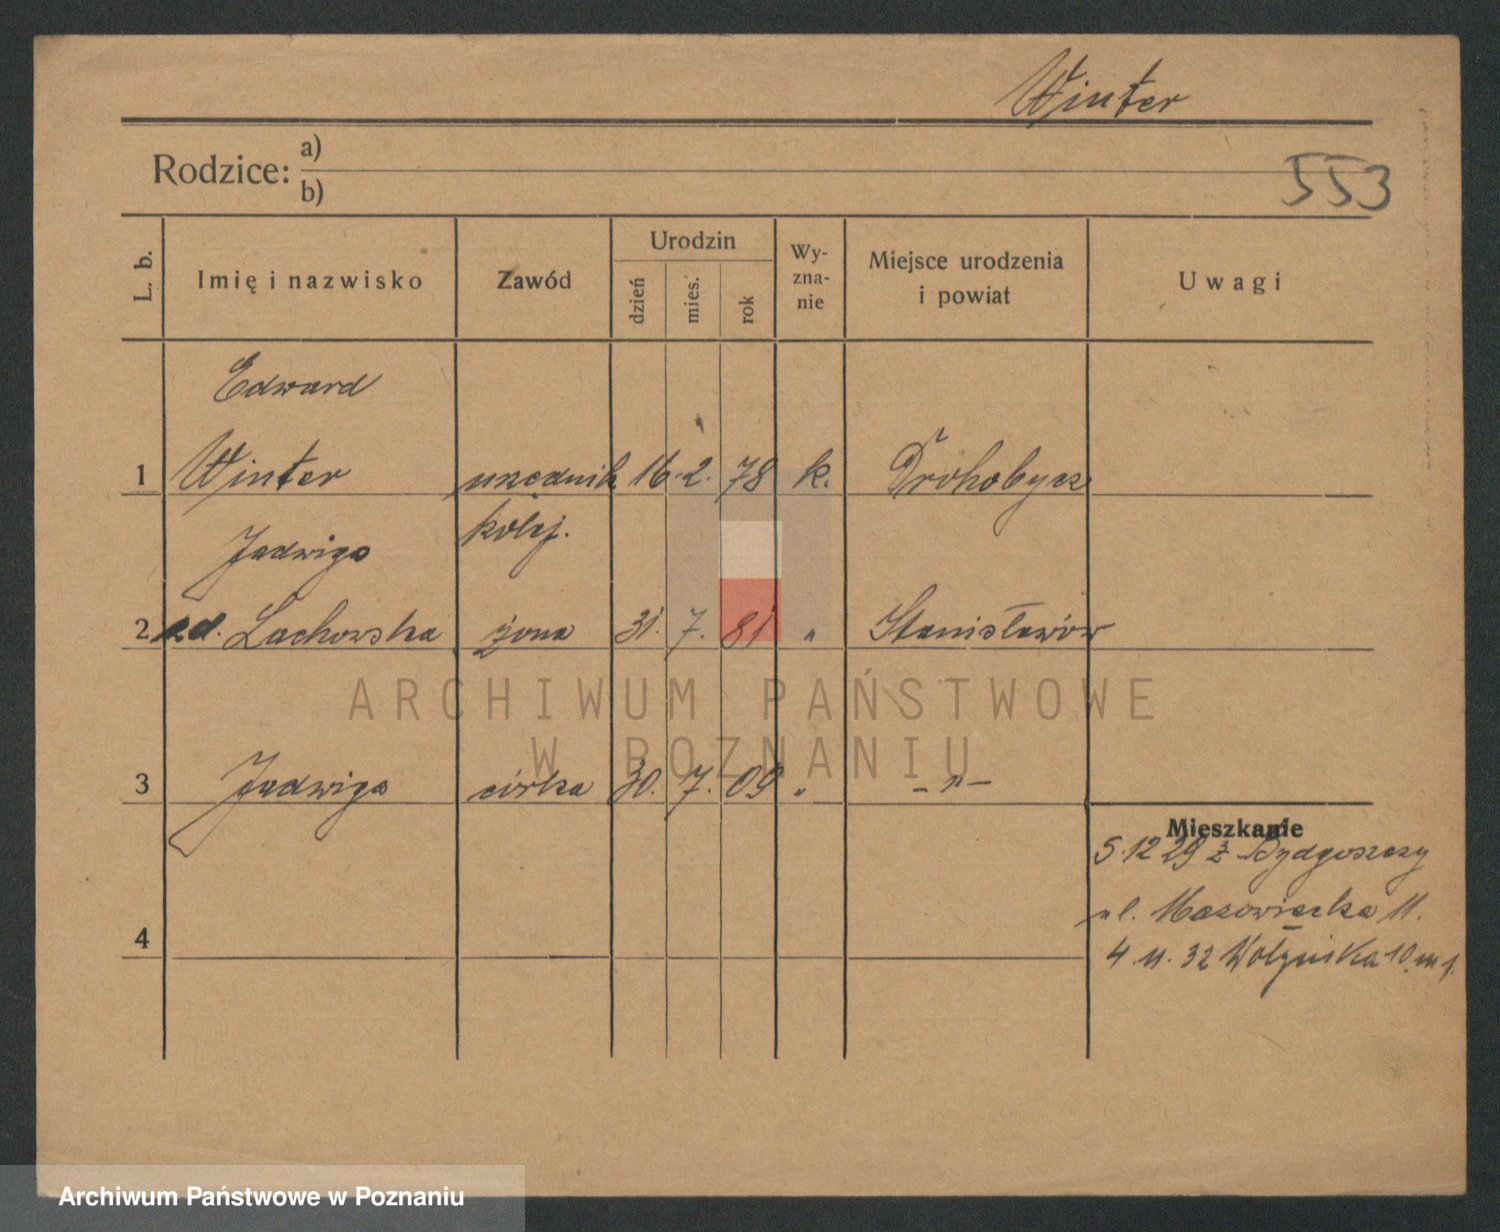 Winter
Rodzice: a)
b)
553
L. b.
Imię i nazwisko
Zawód
Urodzin
dzień
mies.
rok
Wy-
zna-
nie
Miejsce urodzenia
i powiat
Uwagi
Edward
1 Winter urzędnik 16. 2. 78 k. Drohobycz
kolej.
Jadwiga
2 zd. Lachowska żona 31. 7. 81 " Stanisławów
3 Jadwiga córka 30. 7. 09 " - " -
4
Mieszkanie
5.12 29 z Bydgoszczy
ul. Mazowiecka 11.
4. 11. 32 Wołyńska 10 m 1.
ARCHIWUM PAŃSTWOWE
W POZNANIU
Archiwum Państwowe w Poznaniu